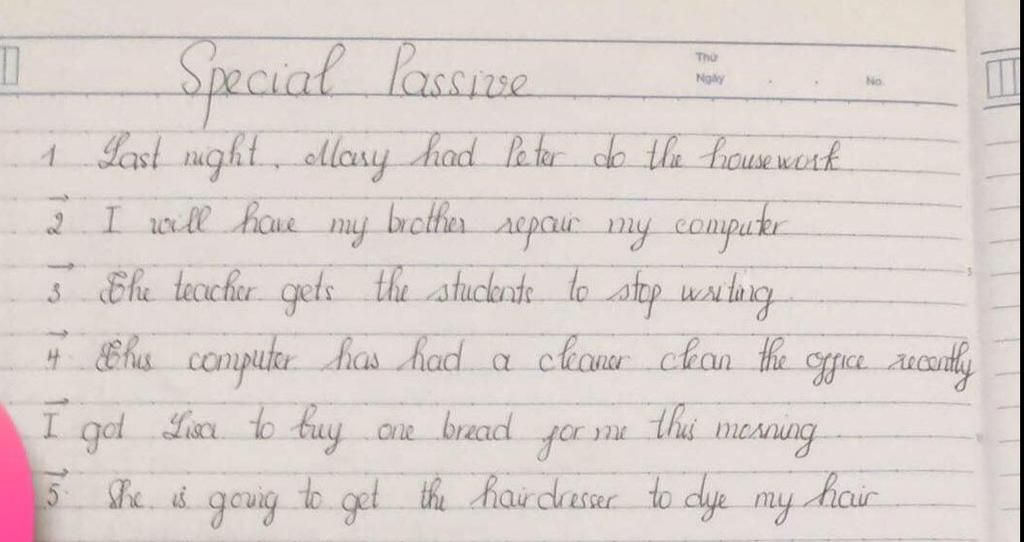 Special Passive
Thứ
Ngày . . No.
1 Last night, Mary had Peter do the housework
→
2 I will have my brother repair my computer
→
3 The teacher gets the students to stop writing
→
4 This computer has had a cleaner clean the office recently
→
I got Lisa to buy one bread for me this morning
→
5 She is going to get the hairdresser to dye my hair